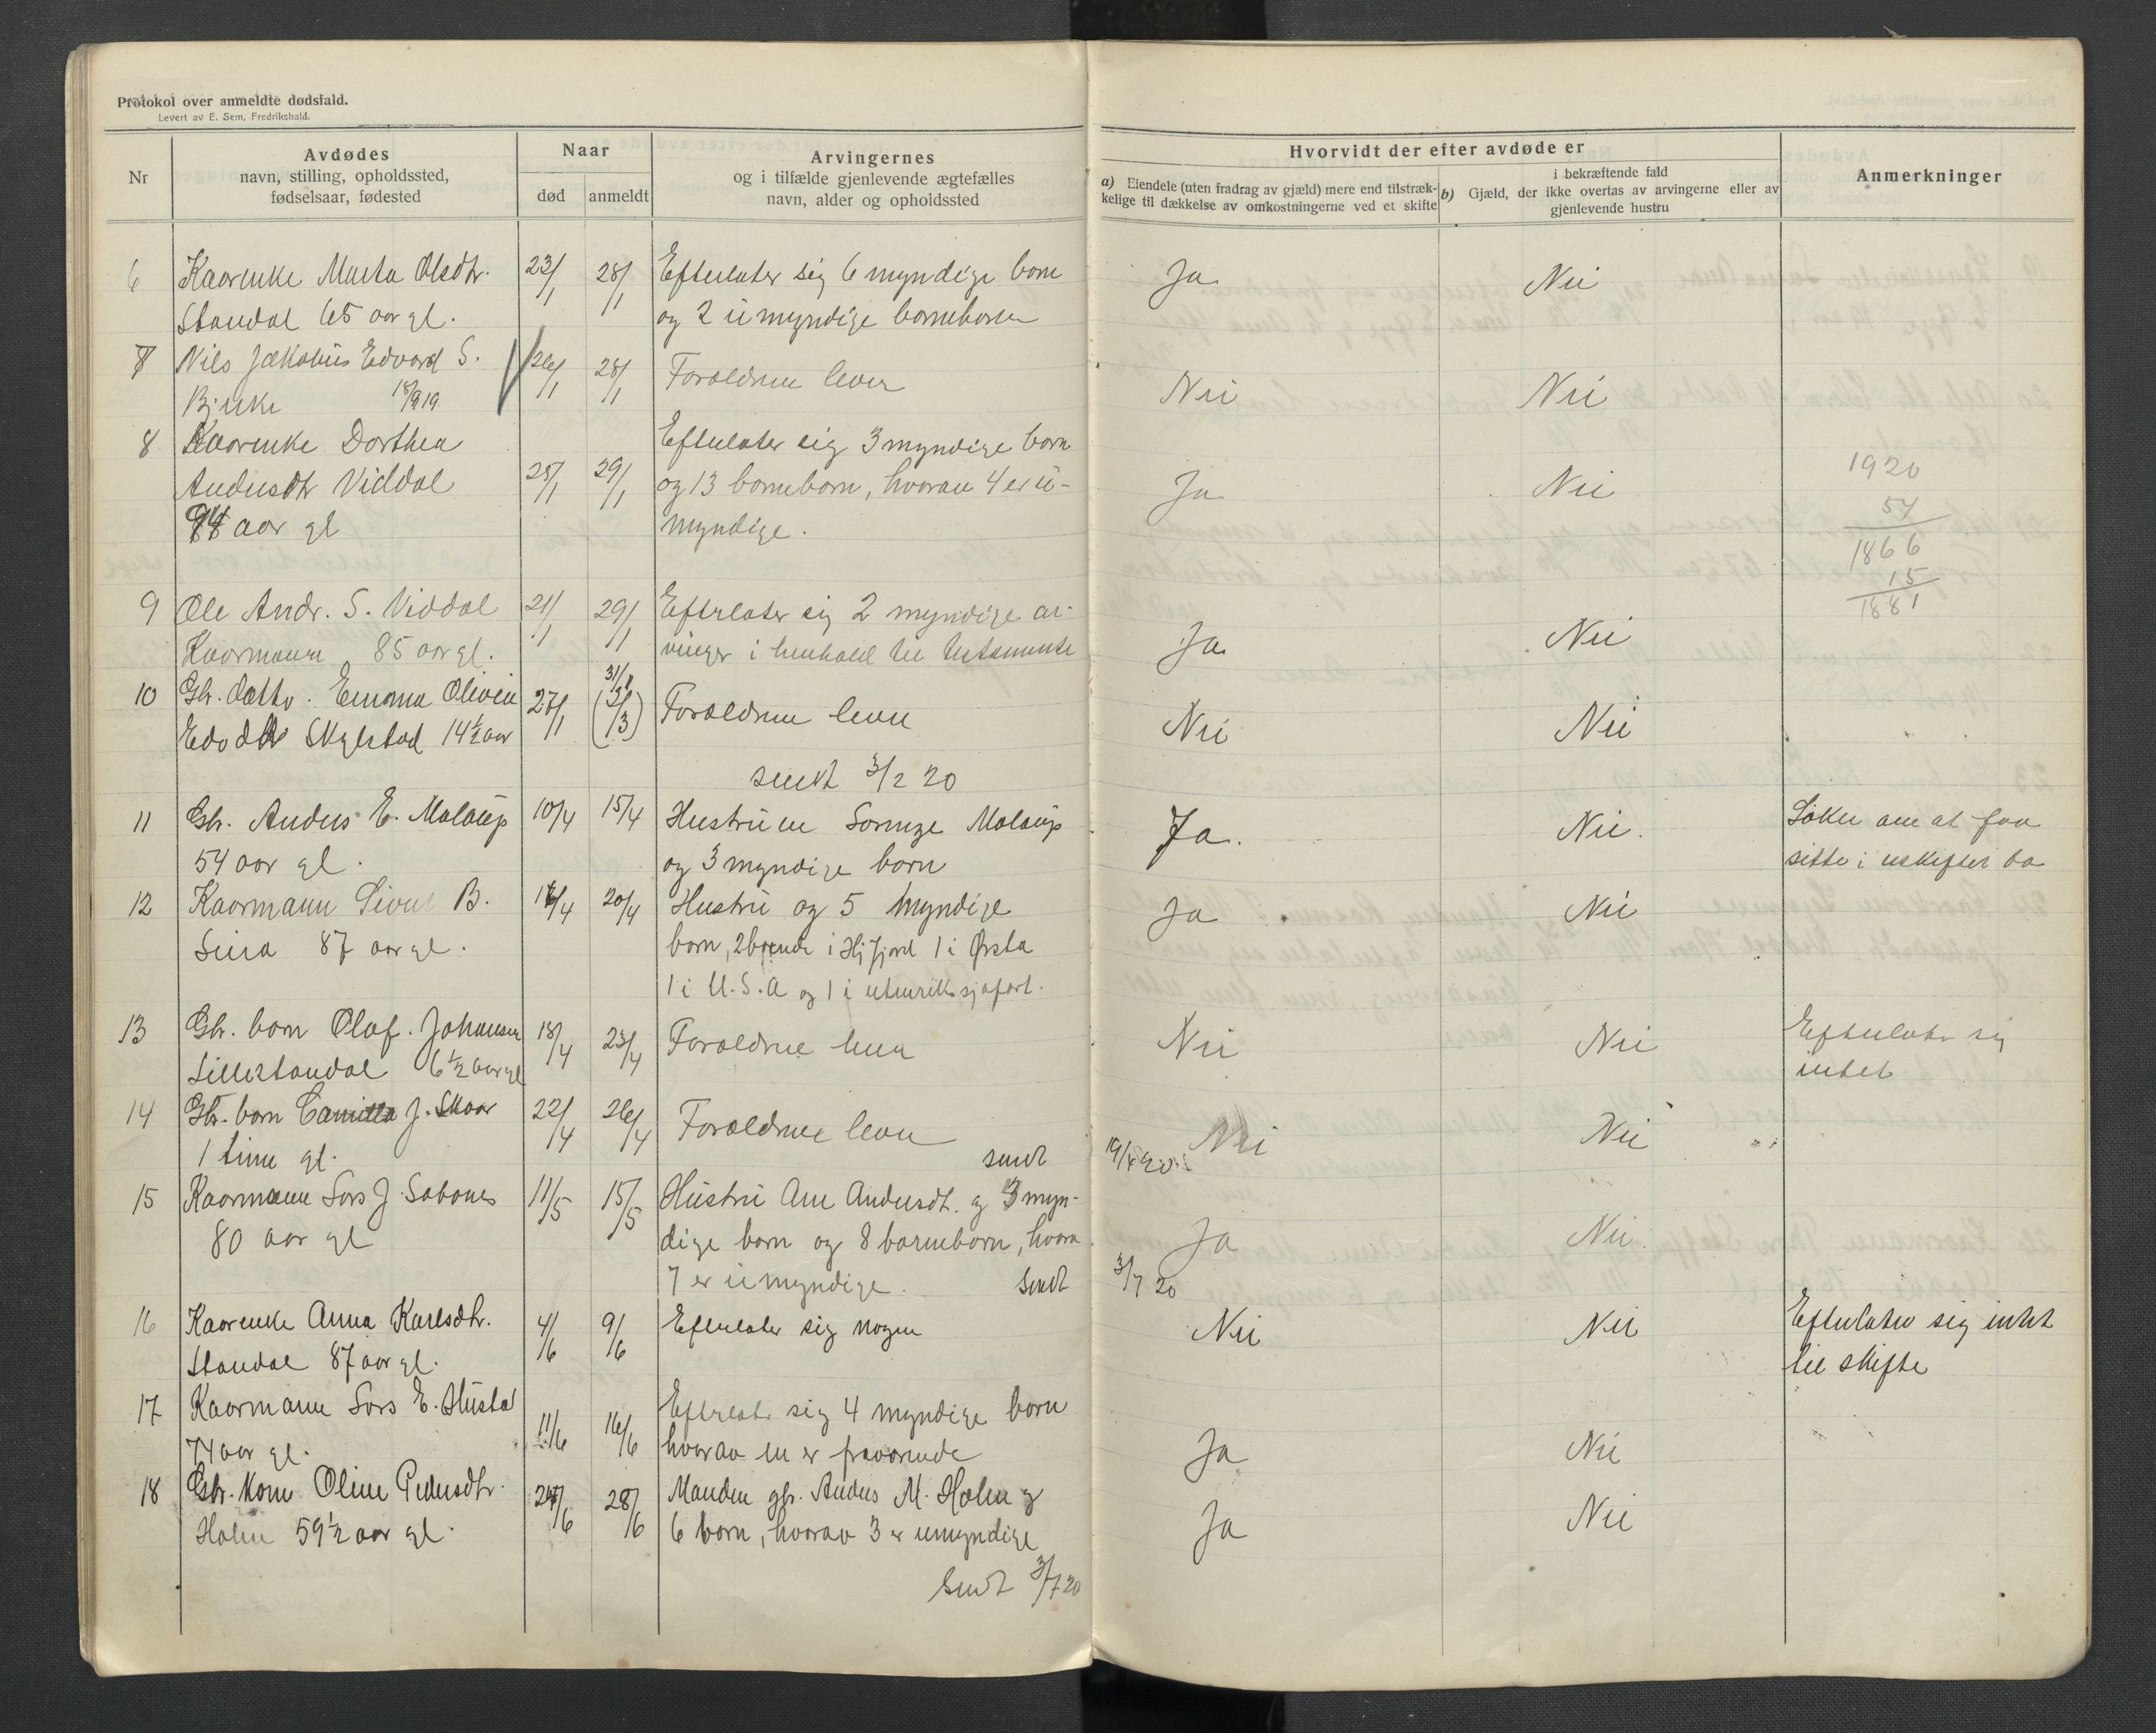 Protokol over anmeldte dødsfald.
Levert av E. Sem, Fredrikshald.
Nr
Avdødes
navn, stilling, opholdssted,
fødselsaar, fødested
Naar
død
anmeldt
Arvingernes
og i tilfælde gjenlevende ægtefælles
navn, alder og opholdssted
Hvorvidt der efter avdøde er
a) Eiendele (uten fradrag av gjæld) mere end tilstræk-
kelige til dækkelse av omkostningerne ved et skifte
i bekræftende fald
b) Gjæld, der ikke overtas av arvingerne eller av
gjenlevende hustru
Anmerkninger
6 Kaarenke Marta Olsdtr. 23/1 28/1 Efterlater sig 6 myndige born Ja Nei
Standal 65 aar gl. og 2 umyndige borneborn
7 Nils Jakobus Edvard S. 26/1 28/1 Foreldrene lever Nei Nei
Bjerke 18/9 19
8 Kaarenke Dorthea Efterlater sig 3 myndige born
Andersdtr Viddal 25/1 29/1 og 13 borneborn, hvorav 4 er u- Ja Nei
94 aar gl myndige.
1920
54
1866
15
1881
9 Ole Andr. S. Viddal 21/1 29/1 Efterlater sig 2 myndige ar- Ja Nei
Kaarmann 85 aar gl. vinger i henhold til testamente
10 Gbr. datter. Emma Olivia 27/1 31/1 (3/3) Foreldrene lever Nei Nei
Edvdtr Skylstad 14½ aar
sendt 3/2 20
11 Gbr. Anders E. Molaup 10/4 15/4 Hustruen Sorine Molaup Ja. Nei. Søker om at faa
54 aar gl. og 3 myndige born sitte i uskiftet bo
12 Kaarmann Sivert B. 16/4 20/4 Hustru og 5 myndige Ja Nei
Leira 87 aar gl. born, 2 boende i Hj.fjord 1 i Ørsta
1 i U.S.A og 1 i utenriks sjøfart.
13 Gbr. born Olaf. Johansen 18/4 23/4 Foreldrene lever Nei Nei Efterlater sig
Lillestandal 6½ aar gl intet
14 Gbr. born Camilla J. Skaar 22/4 26/4 Foreldrene lever Nei Nei
1 time gl. sendt 19/4 20
15 Kaarmann Lars J. Sabones 11/5 15/5 Hustru Ane Andersdt. og 3 myn-
80 aar gl dige born og 8 borneborn, hvorav Ja Nei.
7 er umyndige. Sendt 3/7 20
16 Kaarenke Anna Karlsdtr. 4/6 9/6 Efterlater sig nogen Nei Nei Efterlater sig intet
Standal 87 aar gl. til skifte
17 Kaarmann Lars E. Hustad 11/6 16/6 Efterlater sig 4 myndige born
74 aar gl. hvorav en er fraværende Ja Nei
18 Gbr. kone Oline Pedersdtr. 24/6 28/6 Manden gbr. Anders M. Holm og
Holm 59½ aar gl. 6 born, hvorav 3 er umyndige Ja Nei
Sendt 3/7 20